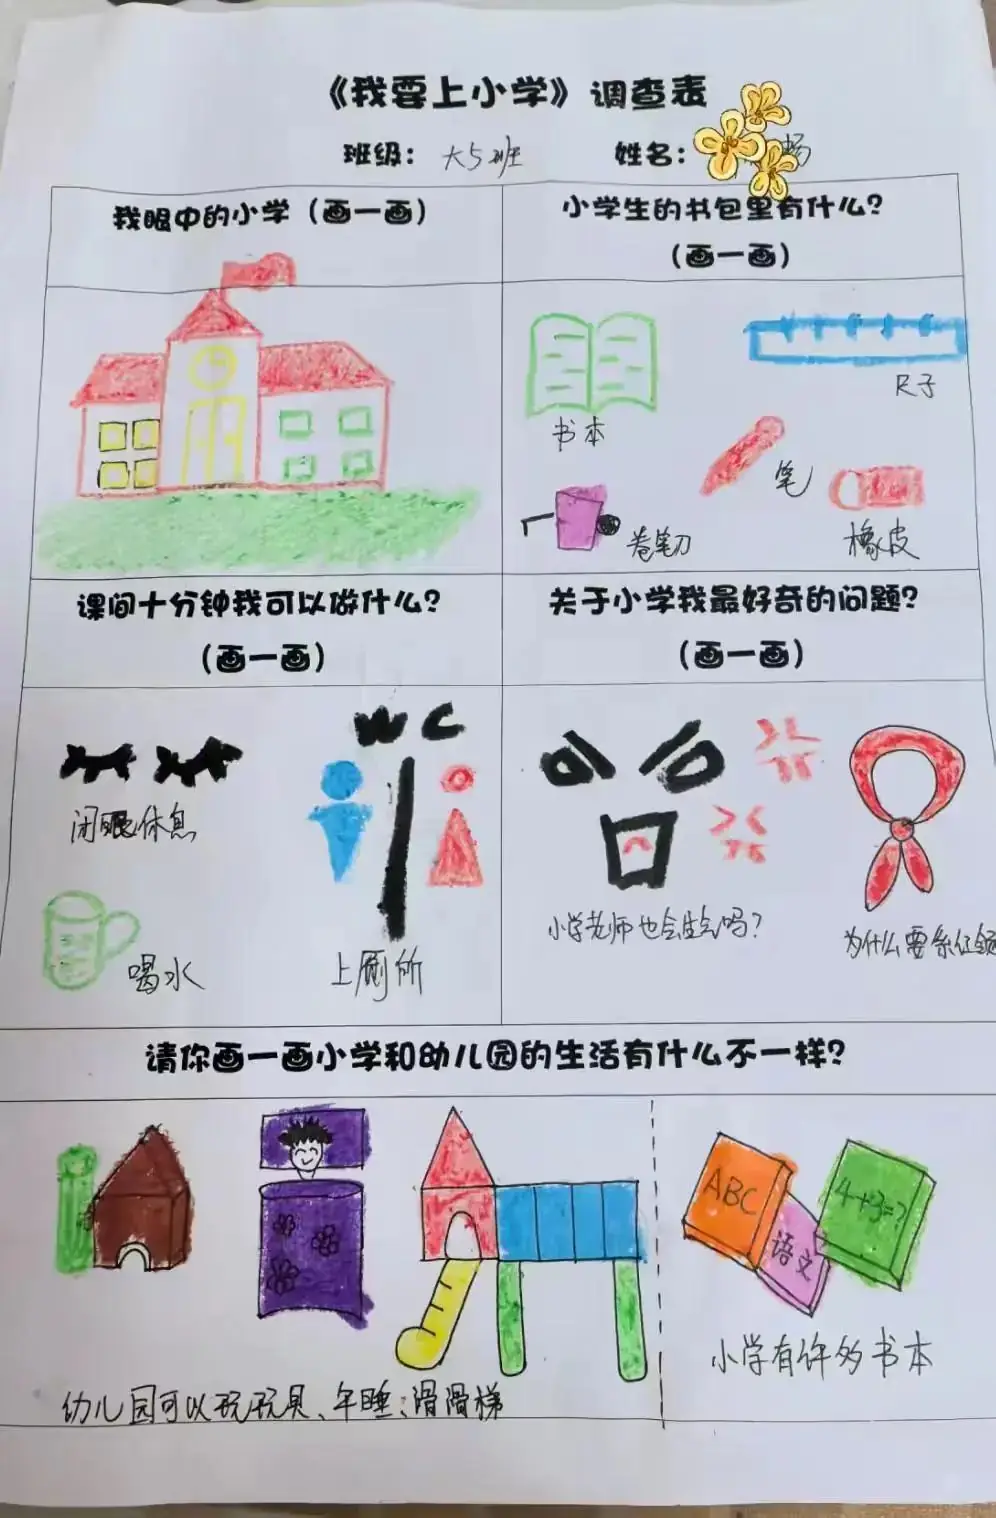 《我要上小学》调查表
班级：大5班 姓名：畅
我眼中的小学（画一画）
小学生的书包里有什么？
（画一画）
书本
尺子
笔
卷笔刀
橡皮
课间十分钟我可以做什么？
（画一画）
关于小学我最好奇的问题？
（画一画）
WC
闭眼休息
喝水
上厕所
小学老师也会生气吗？
为什么要系红领
请你画一画小学和幼儿园的生活有什么不一样？
ABC
语文
4+3=?
幼儿园可以玩玩具、午睡、滑滑梯
小学有许多书本